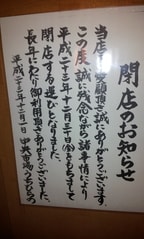 閉店のお知らせ
当店を御愛顧頂き誠にありがとうございます。
この度、誠に残念ながら諸事情により
平成二十三年十二月三十日(金)をもちまして
閉店する運びとなりました。
長年にわたり御利用頂きありがとうございました。
平成二十三年十二月一日 中央市場